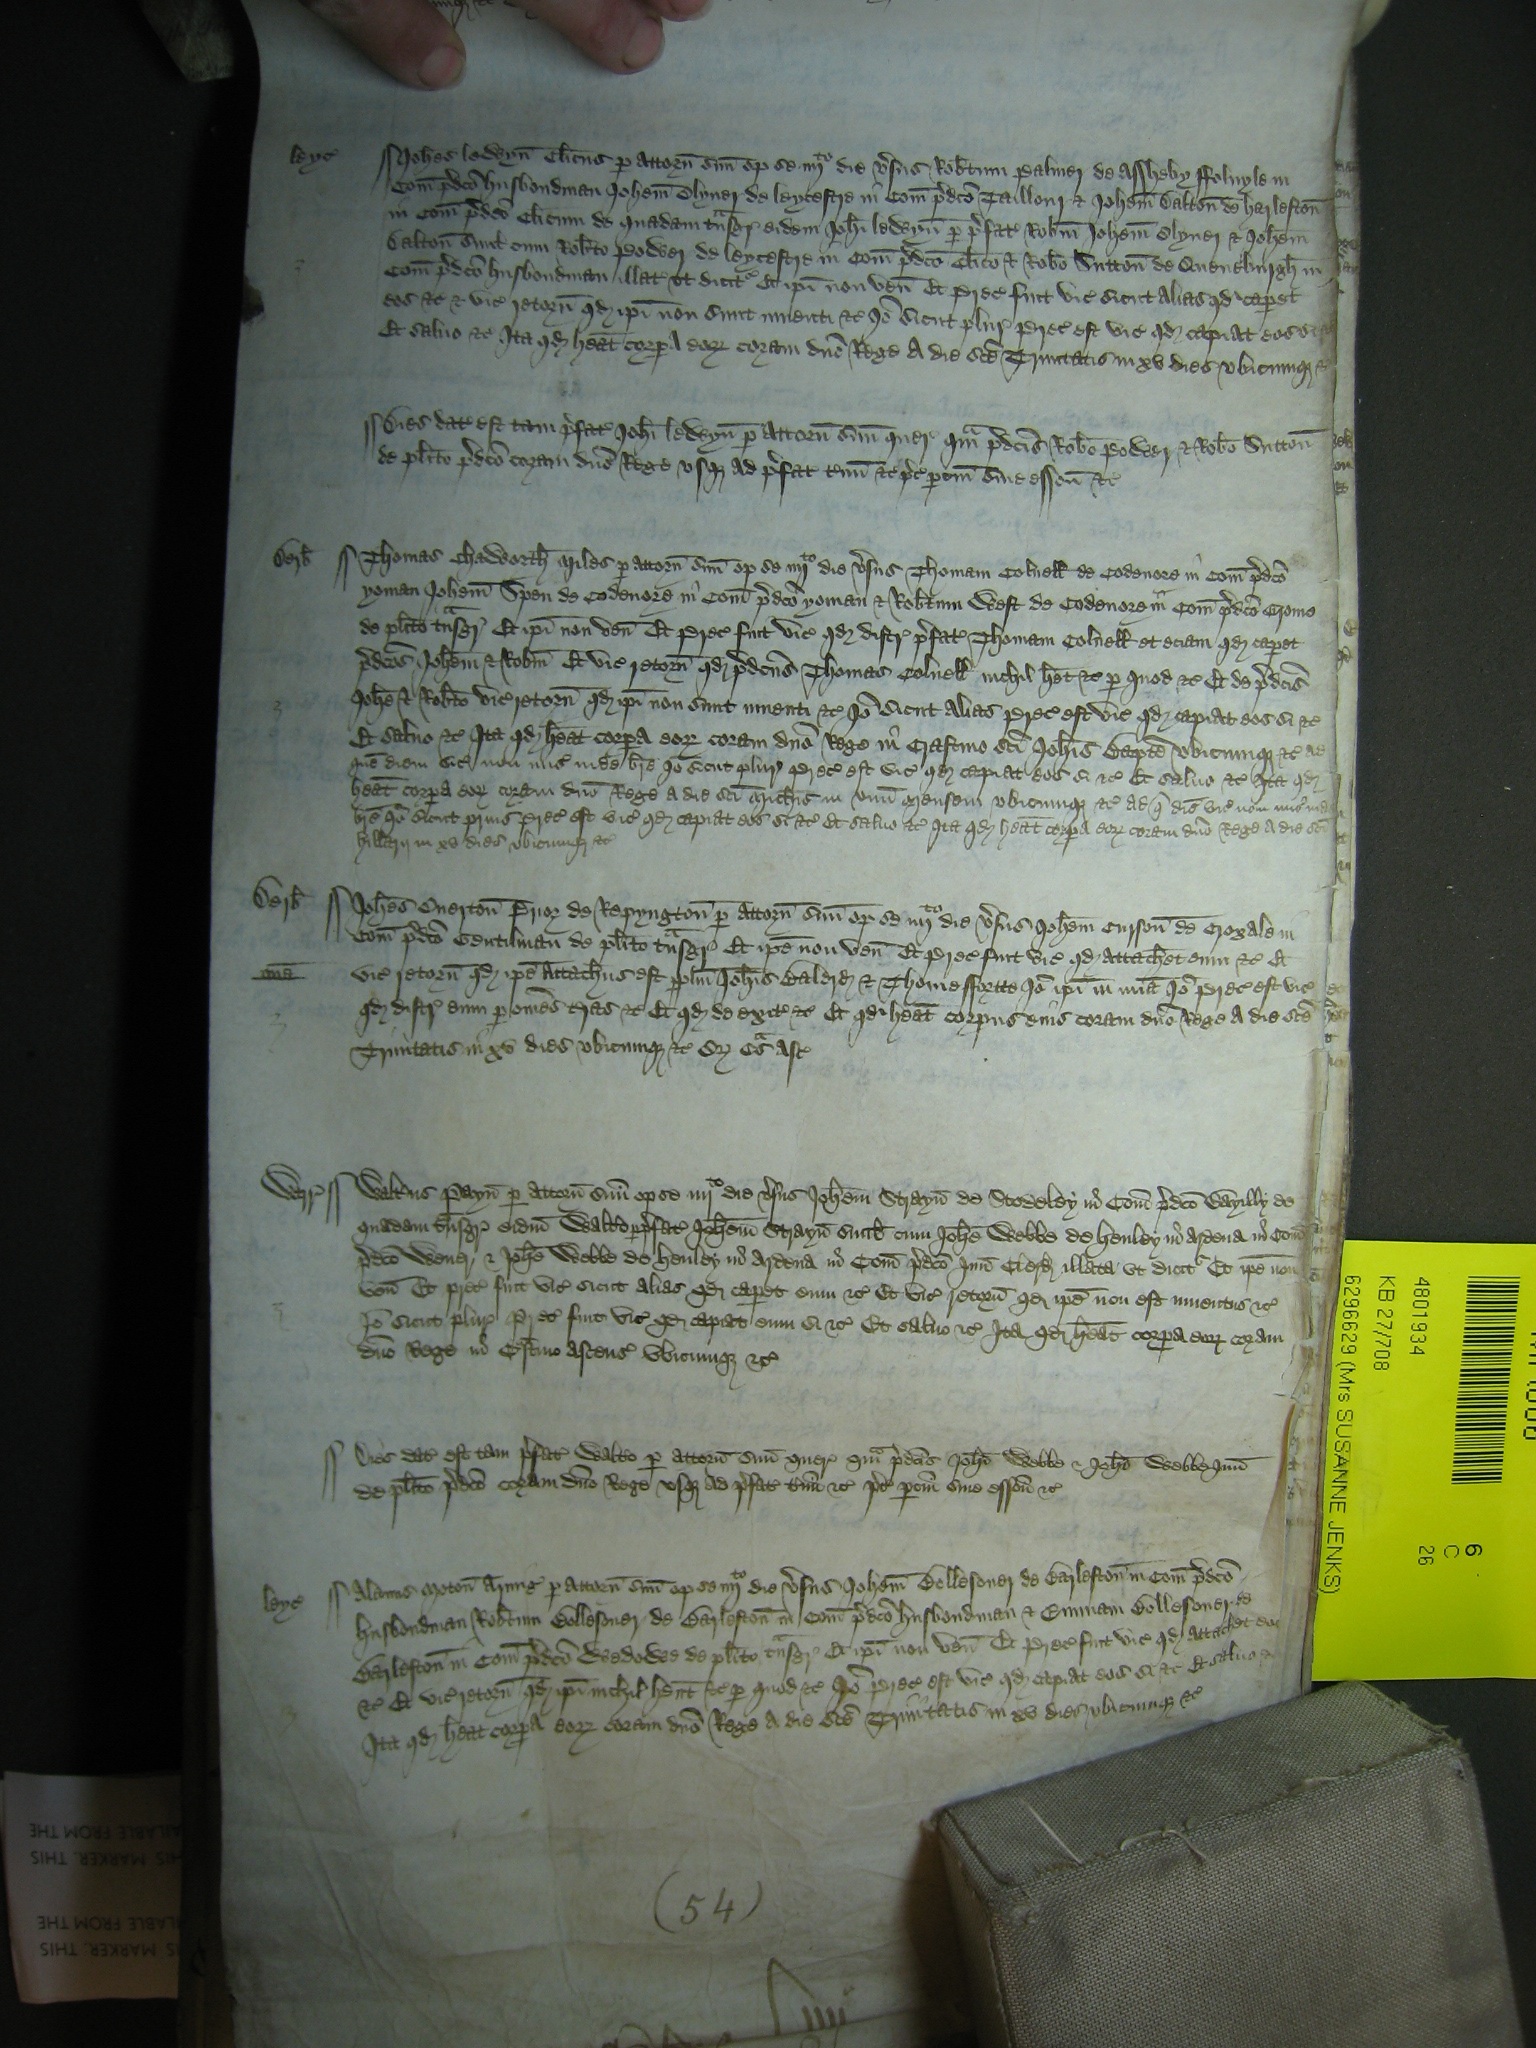 leyc Joh̄es ledwyn̄ Cl̄icus p attorn̄ suū op se iiijto die v̄sus Rob̄tum Palmer de Assheby ffoluyle in
Com̄ p̄dc̄o husbondman Joh̄em Glyuer de leycestre in Com̄ p̄dc̄o Taillour & Joh̄em Dalton̄ de harleston̄
in Com̄ p̄dc̄o Cl̄icum de quadam t̃nsgr̄ eidem Joh̄i ledwyn̄ p p̄fat Rob̄m Joh̄em Glyuer & Joh̄em
Dalton̄ simt cum Rob̄to Power de leycestre in Com̄ p̄dc̄o Cl̄ico & Rob̄o Sutton̄ de Queneburgh̄ in
Com̄ p̄dc̄o husbondman illat ut dicit' Et ip̄i non ven̄ Et prec̄ fuit vic̄ sicut alias qd' cap̄et
eos &c & vic̄ retorn̄ qd ip̄i non sunt inuenti &c Jo̅ sicut plur̄ prec̄ est vic̄ qd capiat eos si
Et saluo &c Jta qd h̄eat corpa eor coram dn̄o Rege A die sc̄e Trinitatis in xv dies vbicumq &c
Dies dat est tam p̄fat Joh̄i ledwyn̄ p Attorn̄ suū quer̄ qm̃ p̄dc̄is Rob̄o Power & Rob̄o Sutton̄
de pl̄ito p̄dc̄o coram dn̄o Rege vsq ad p̄fat t̄mū &c p̄c̄ parciū sine esson̄ &c
Derb̄ Thomas Chaworth̄ Miles p attorn̄ suū op se iiijto die v̄sus Thomam Colnell de Codenore in Com̄ p̄dc̄o
yoman Joh̄em Spen de Codenore in Com̄ p̄dc̄o yoman & Rob̄tum West de Codenore in Com̄ p̄dc̄o Grome
de pl̄ito t̃nsgr̄ Et ip̄i non ven̄ Et prec̄ fuit vic̄ qd distr̄ p̄fat Thomam Colnell et eciam qd cap̄et
p̄dc̄os Joh̄em & Rob̄m Et vic̄ retorn̄ qd p̄dc̄us Thomas Colnell nichil h̄et &c p quod &c Et de p̄dc̄is
Joh̄e & Rob̄to vic̄ retorn̄ qd ip̄i non sunt inuenti &c Jo̅ sicut alias prec̄ est vic̄ qd capiat eos si &c
Et saluo &c Jta qd h̄eat corpa eor coram dn̄o Rege in Crastino sc̄i Joh̄is Bapt̄e vbicumq &c ad
que diem vic̄ non mis̄ inde br̄e Jo̅ sicut plur̄ prec̄ est vic̄ qd capiat eos si &c Et saluo &c Jta qd
h̄eat corpa eor coram dn̄o Rege A die sc̄i Mich̄is in vnū mensem vbicumq &c ad q̄ diē vic̄ non mis̄ inde
br̄e Jo̅ sicut prius prec̄ est vic̄ qd capiat eos si &c Et saluo &c Jta qd h̄eat corpa eor coram dn̄o Rege A die sc̄i
hillarij in xv dies vbicumq &c
Derb̄ Joh̄es Ouerton̄ Prior de Repyngton̄ p Attorn̄ suū op se iiijto die v̄sus Joh̄em Curson̄ de Croxale in
Com̄ p̄dc̄o Gentilman de pl̄ito t̃nsgr̄ Et ip̄e non ven̄ Et prec̄ fuit vic̄ qd attach̄et eum &c Et
mīa vic̄ retorn̄ qd ip̄e Attach̄us est p plm̄ Joh̄is Balerd & Thome ffortte Jo̅ ip̄i in mīa Jo̅ prec̄ est vic̄
qd distr̄ eum p om̄es t̄ras &c Et qd de exit̄ &c Et qd h̄eat corpus eius coram dn̄o Rege A die sc̄e
Trinitatis in xv dies vbicumq &c
Warr̄ Walt̄us Payn̄ p attorn̄ suū op se iiijto die v̄sus Joh̄em Strayn̄ de Stodeley in Com̄ p̄dc̄o Bayilly de
quadam t̃nsgr̄ eidm̄ Walt̄o p p̄fat Joh̄em Strayn̄ simt cum Joh̄e Webbe de henley in Ardena in Com̄
p̄dc̄o Wever & Joh̄e Webbe de henley in Ardena in Com̄ p̄dc̄o Juñ Clerk illata ut dicit' Et ip̄e non
ven̄ Et prec̄ fuit vic̄ sicut alias qd cap̄et eum &c Et vic̄ retorn̄ qd ip̄e non est inuentus &c
Jo̅ sicut plur̄ prec̄ fuit vic̄ qd capiat eum si &c Et saluo &c Jta qd h̄eat corpa eor coram
dn̄o Rege in C̃stino Ascens̄ vbicumq &c
Dies dat est tam p̄fat Walt̄o p attorn̄ suū quer̄ qm̃ p̄dc̄is Joh̄i Webbe & Joh̄i Webbe Juñ
de pl̄ito p̄dc̄o coram dn̄o Rege vsq ad p̄fat t̄mū &c p̄c̄ parciū sine esson̄ &c
leyc Alanus Moton̄ Armig̃ p attorn̄ suū op se iiijto die v̄sus Joh̄em Bollesouer de Carleston̄ in Com̄ p̄dc̄o
husbondman Rob̄tum Bollesouer de Carleston̄ in Com̄ p̄dc̄o husbondman & Emmam Bollesouer de
Carleston̄ in Com̄ p̄dc̄o Wedowe de pl̄ito t̃nsgr̄ Et ip̄i non ven̄ Et prec̄ fuit vic̄ qd attach̄et eos
&c Et vic̄ retorn̄ qd ip̄i nichil h̄ent &c p quod &c Jo̅ prec̄ est vic̄ qd capiat eos si &c Et saluo &c
Jta qd h̄eat corpa eor coram dn̄o Rege A die sc̄e Trinitatis in xv dies vbicumq &c
(54)
4801934
KB 27/708
6296629 (Mrs SUSANNE JENKS)
6
C
26
THIS MARKER. THIS
AILABLE FROM THE